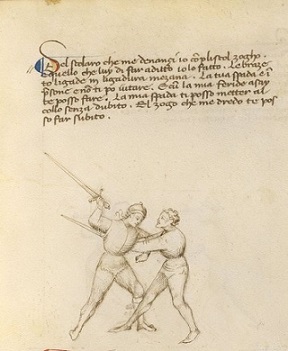 Del scolaro che me denanci io complisco el zogho. Le braze
e quello che luy di far a ditto io lo fatto.
to ligade in ligadura mezana. La tua spada e in
presone e no ti po aitare. E cum la mia feride asay
be posso fare. La mia spada ti posso metter al
collo senza dubito. El zogo che me dredo te pos-
so far subito.